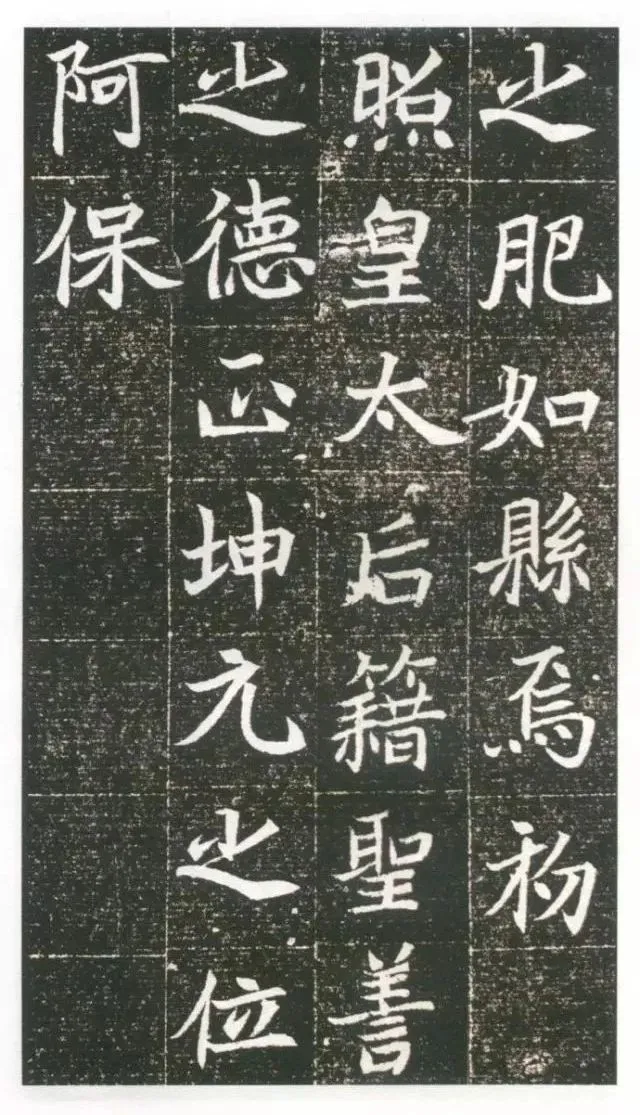 之肥如縣焉初
照皇太后籍聖善
之德正坤元之位
阿保